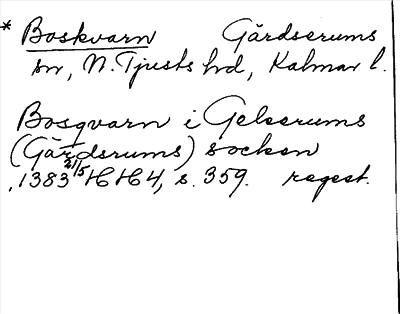 * Boskvarn Gärdserums
sn, N. Tjusts hd, Kalmar l.
Bosqvarn i Gelserums
(Gärdsrums) socken
, 1383 21/5 HH 4, s. 359. regest.